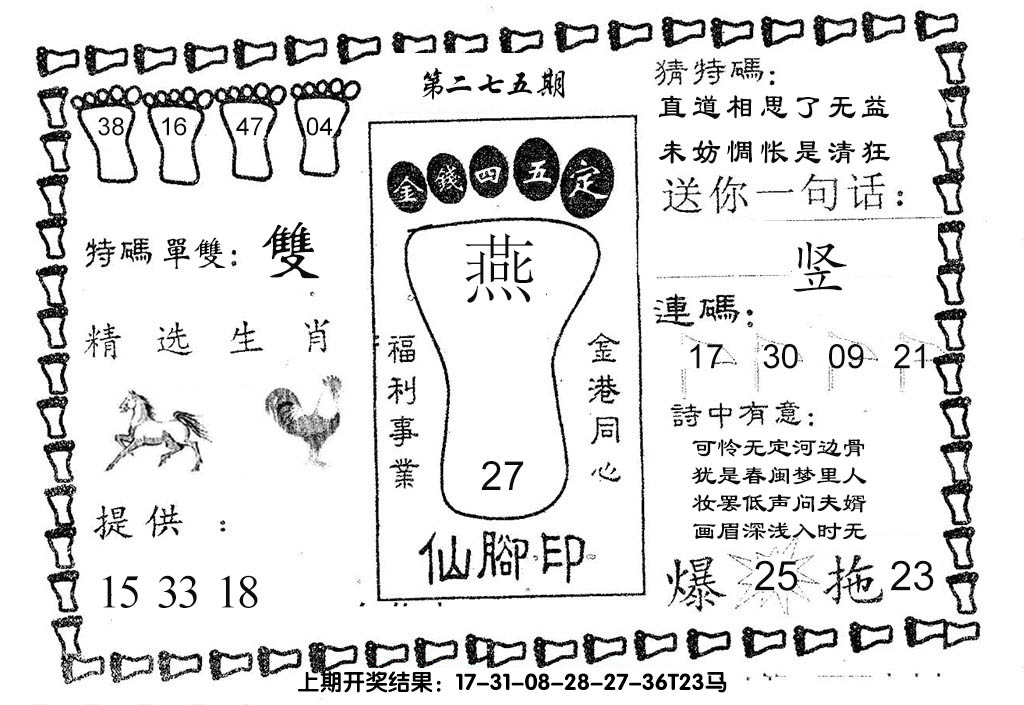 第二七五期
38 16 47 04
特碼單雙: 雙
精选生肖
提供:
15 33 18
金錢四五定
燕
27
福利事業
金港同心
仙腳印
猜特碼:
直道相思了无益
未妨惆怅是清狂
送你一句话:
竖
連碼:
17 30 09 21
詩中有意:
可怜无定河边骨
犹是春闺梦里人
妆罢低声问夫婿
画眉深浅入时无
爆 25 拖 23
上期开奖结果：17-31-08-28-27-36T23马